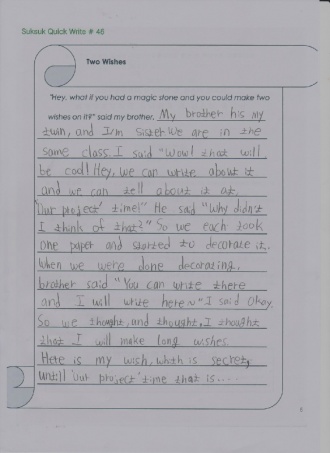 Suksuk Quick Write # 48
Two Wishes
"Hey, what if you had a magic stone and you could make two
wishes on it?" said my brother. My brother his my
twin, and I'm sister We are in the
same class. I said "Wow! that will
be cool! Hey, we can write about it
and we can tell about it at,
'Our project' time!" He said "Why didn't
I think of that?" So we each took
one paper and started to decorate it.
When we were done decorating,
brother said "You can write there
and I will write here~" I said Okay.
So we thought, and thought, I thought
that I will make long wishes.
Here is my wish, Whith is secret,
untill 'our project' time that is....